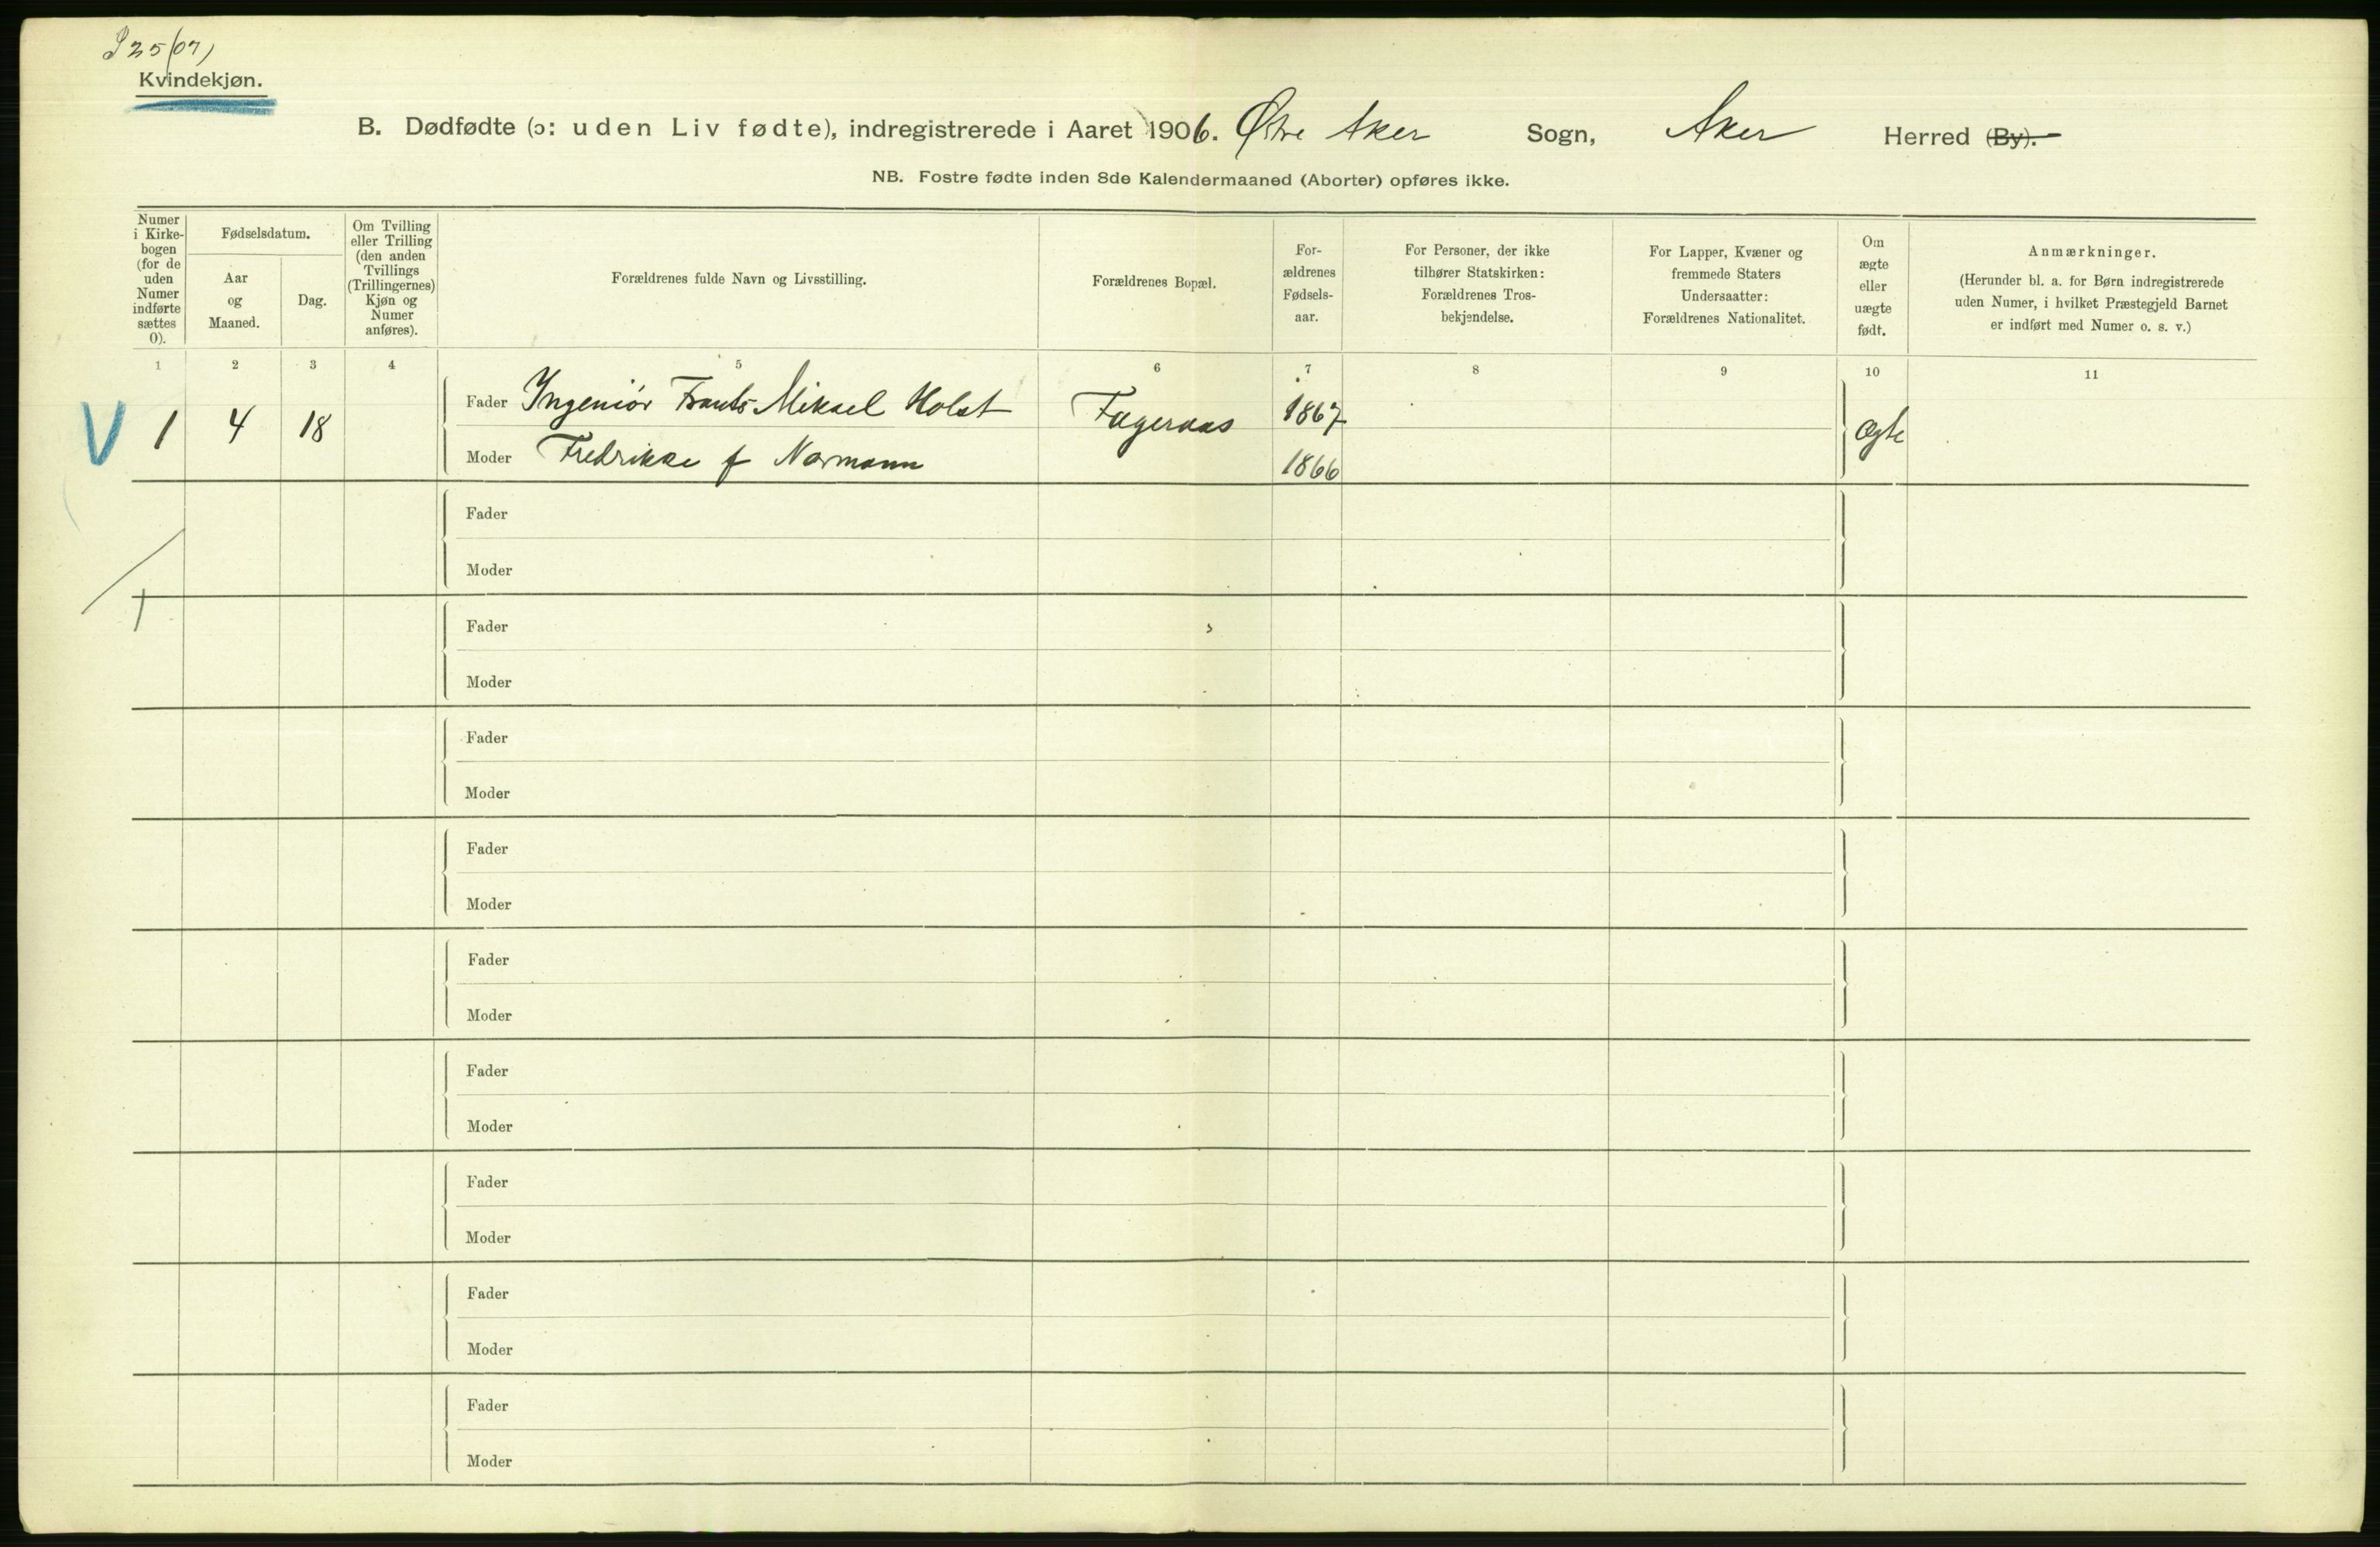 J 25/07)
Kvindekjøn.
B. Dødfødte (ɔ: uden Liv fødte), indregistrerede i Aaret 1906. Østre Aker Sogn, Aker Herred (By).
NB. Fostre fødte inden 8de Kalendermaaned (Aborter) opføres ikke.
Numer
i Kirke-
bogen
(for de
uden
Numer
indførte
sættes
0).
Fødselsdatum.
Aar
og
Maaned.
Dag.
Om Tvilling
eller Trilling
(den anden
Tvillings
(Trillingernes)
Kjøn og
Numer
anføres).
Forældrenes fulde Navn og Livsstilling.
Forældrenes Bopæl.
For-
ældrenes
Fødsels-
aar.
For Personer, der ikke
tilhører Statskirken:
Forældrenes Tros-
bekjendelse.
For Lapper, Kvæner og
fremmede Staters
Undersaatter:
Forældrenes Nationalitet.
Om
ægte
eller
uægte
født.
Anmærkninger.
(Herunder bl. a. for Børn indregistrerede
uden Numer, i hvilket Præstegjeld Barnet
er indført med Numer o. s. v.)
1 2 3 4 5 6 7 8 9 10 11
V 1 4 18
Fader Ingeniør Frants Mikael Holst Fageraas 1867 Ægte
Moder Fredrikke f Normann 1866
Fader
Moder
1
Fader
Moder
Fader
Moder
Fader
Moder
Fader
Moder
Fader
Moder
Fader
Moder
Fader
Moder
Fader
Moder